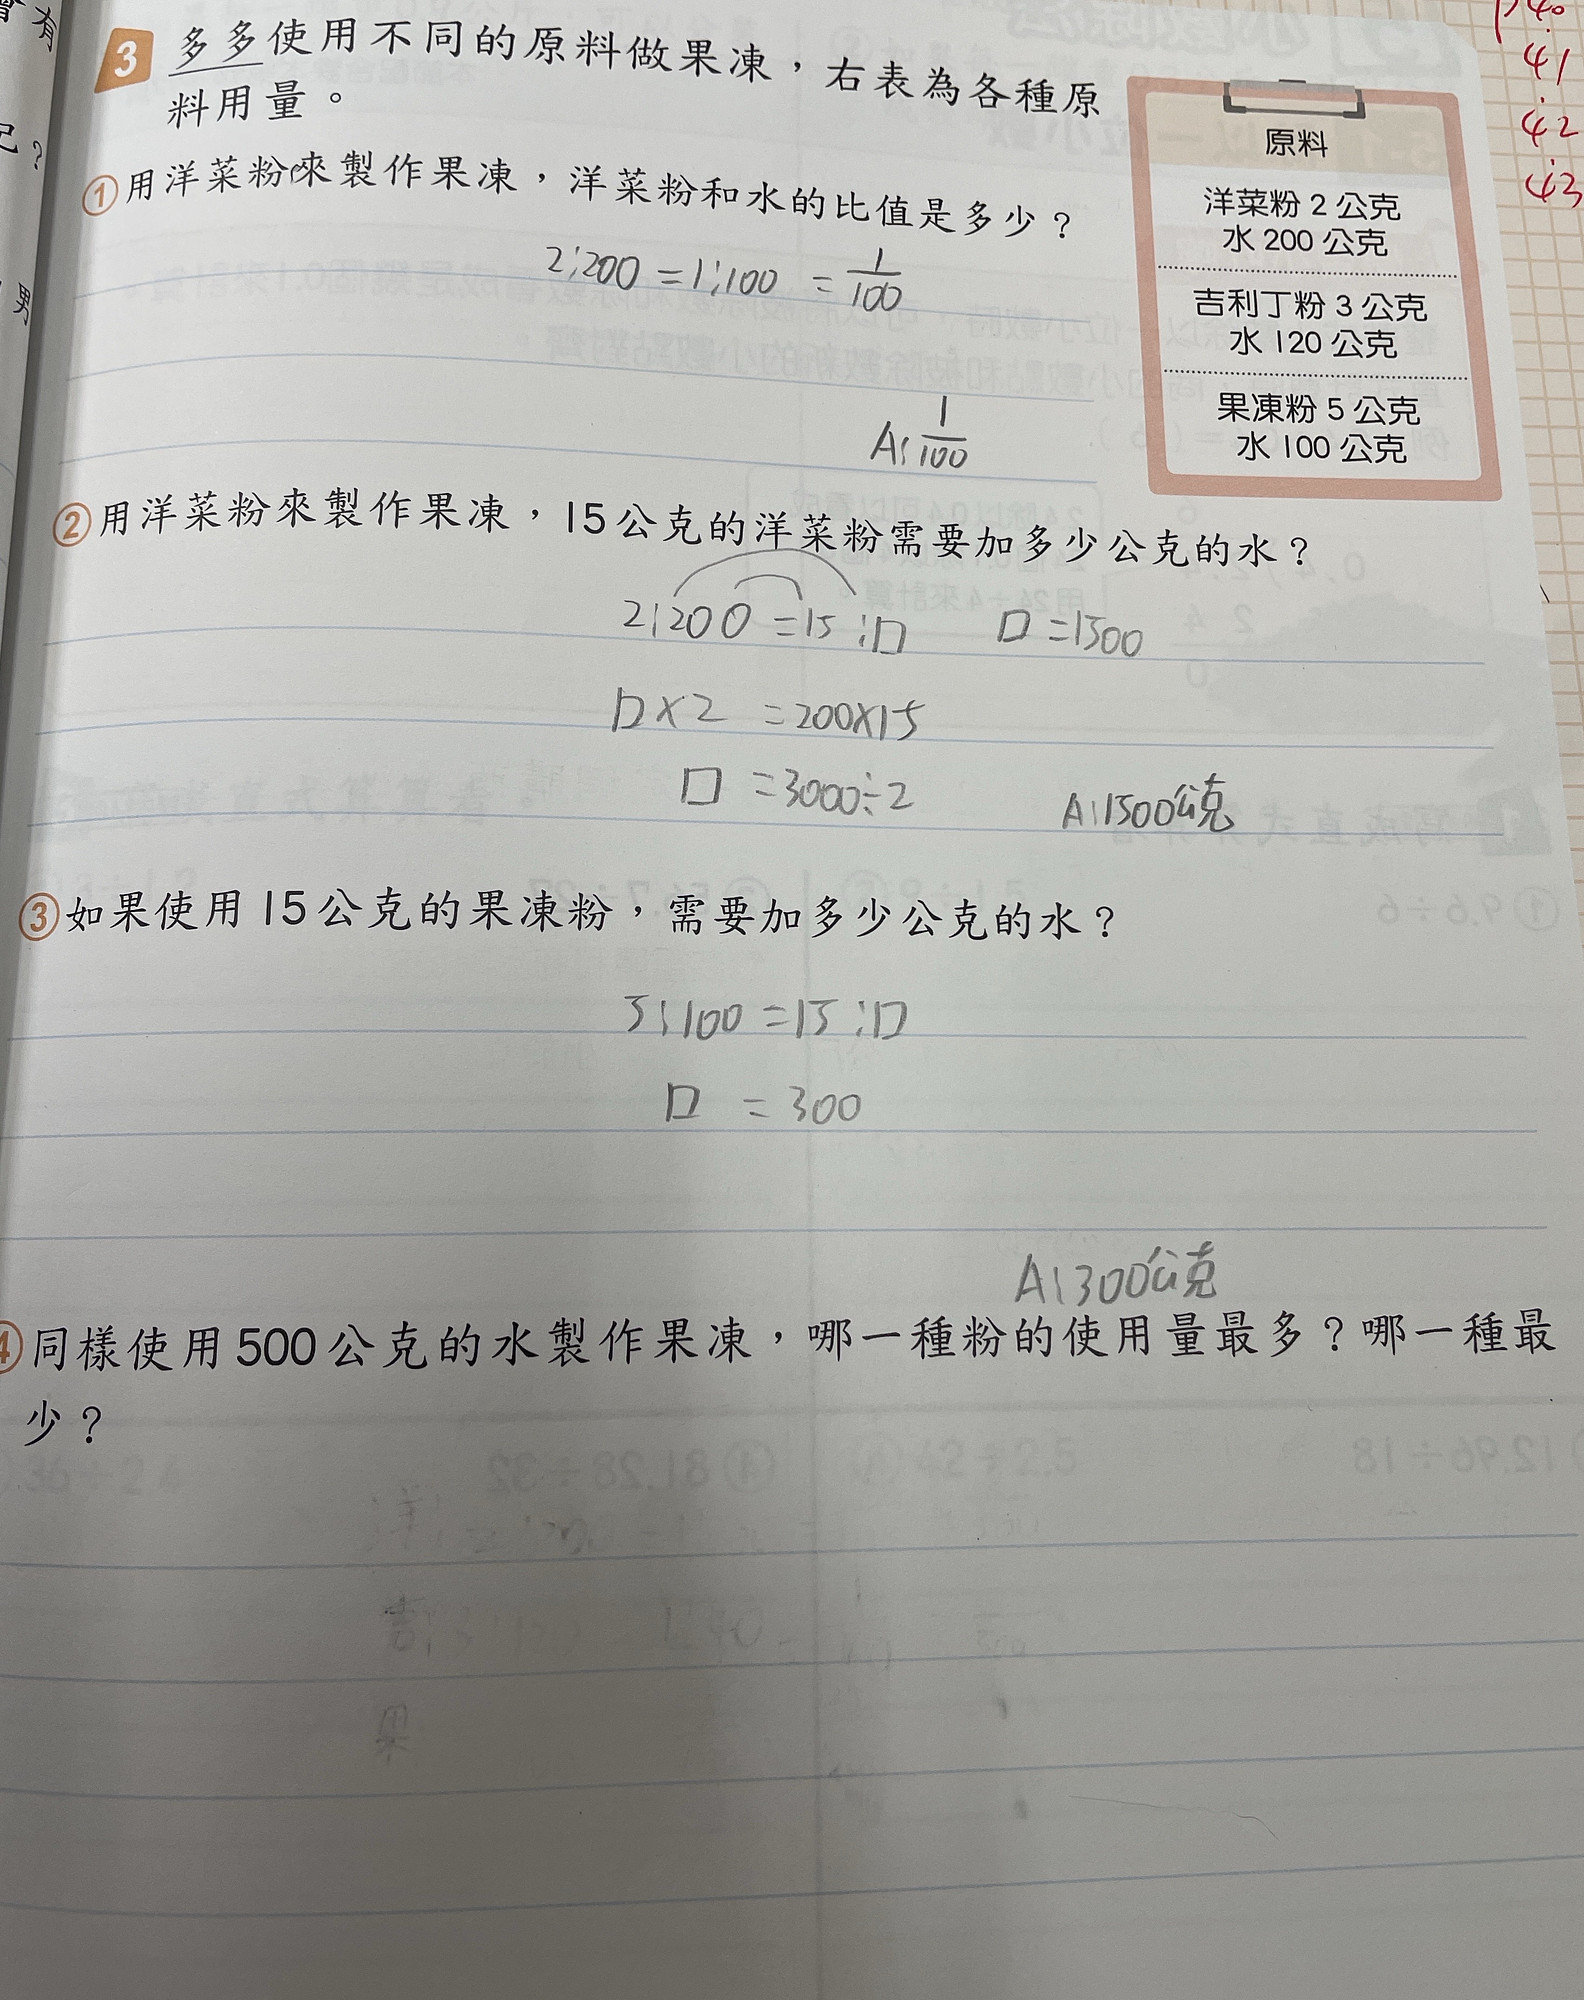 有
?
男
3 多多使用不同的原料做果凍,右表為各種原
料用量。
原料
洋菜粉 2 公克
水 200 公克
吉利丁粉 3 公克
水 120 公克
果凍粉 5 公克
水 100 公克
40
41
42
43
①用洋菜粉來製作果凍,洋菜粉和水的比值是多少?
2:200 = 1:100 = 1/100
A: 1/100
②用洋菜粉來製作果凍,15公克的洋菜粉需要加多少公克的水?
2:200 = 15:□ □=1500
□×2 = 200×15
□ = 3000÷2
A:1500公克
③如果使用15公克的果凍粉,需要加多少公克的水?
5:100 = 15:□
□ = 300
A:300公克
④同樣使用500公克的水製作果凍,哪一種粉的使用量最多?哪一種最
少?
果